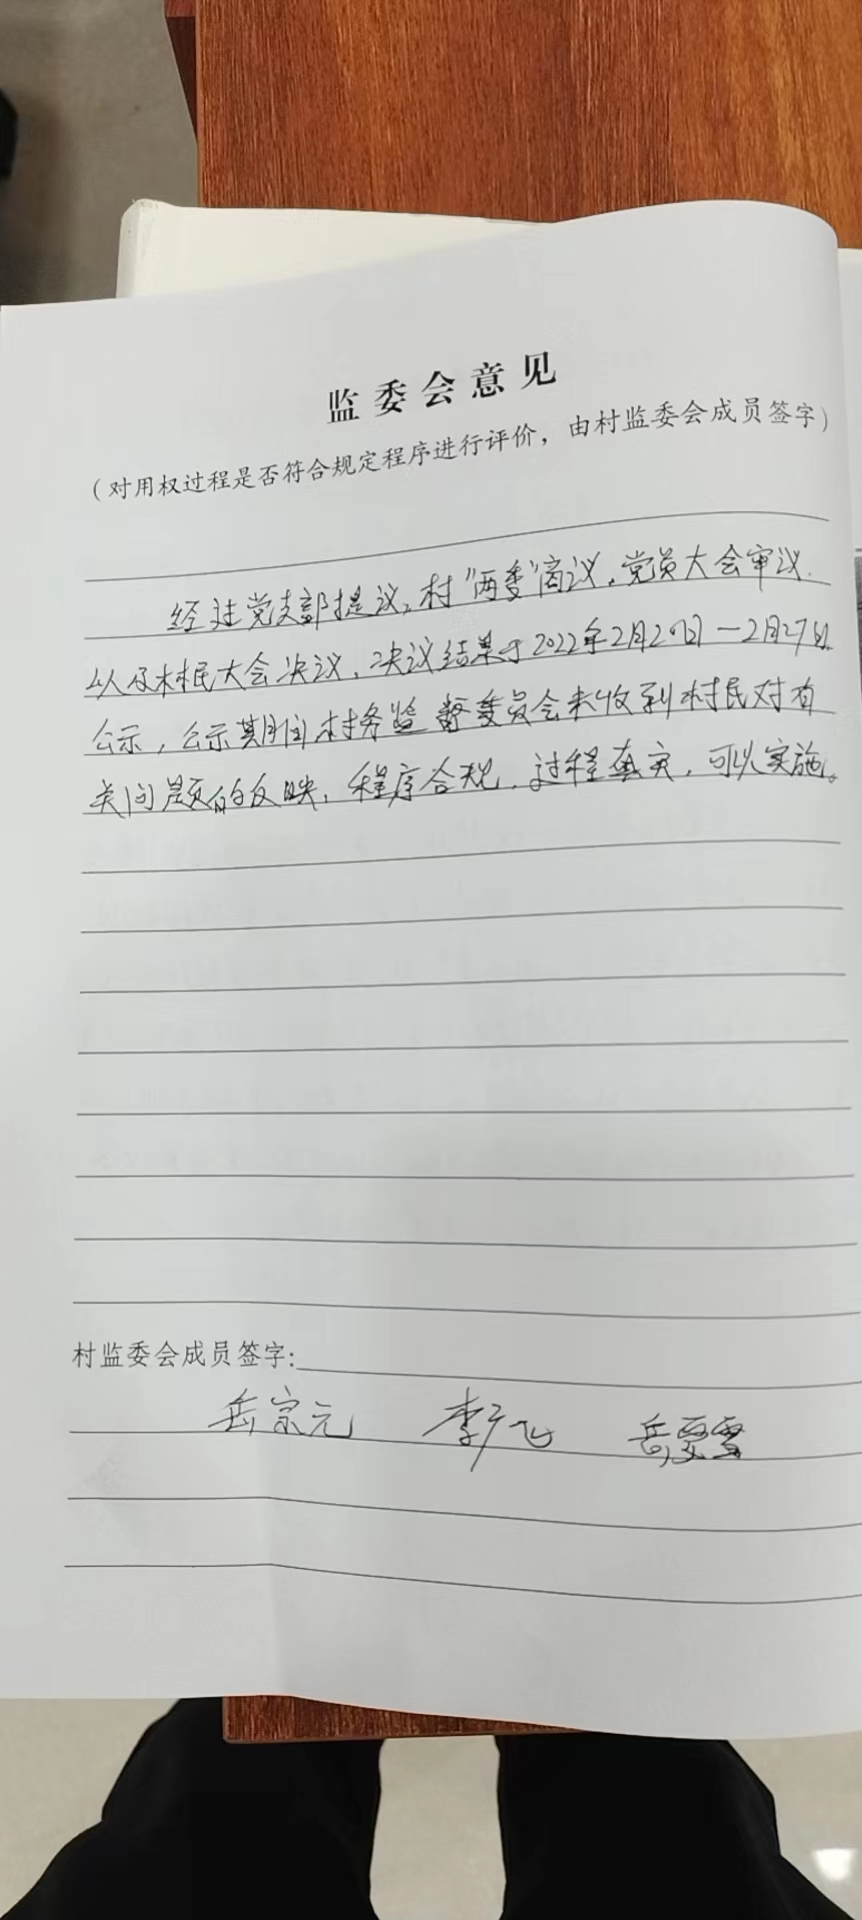 监委会意见
（对用权过程是否符合规定程序进行评价，由村监委会成员签字）
经过党支部提议，村“两委”商议，党员大会审议
以及村民大会决议，决议结果于2022年2月20日—2月27日
公示，公示期间村务监督委员会未收到村民对有
关问题的反映，程序合规，过程真实，可以实施。
村监委会成员签字：
岳宗元 李广飞